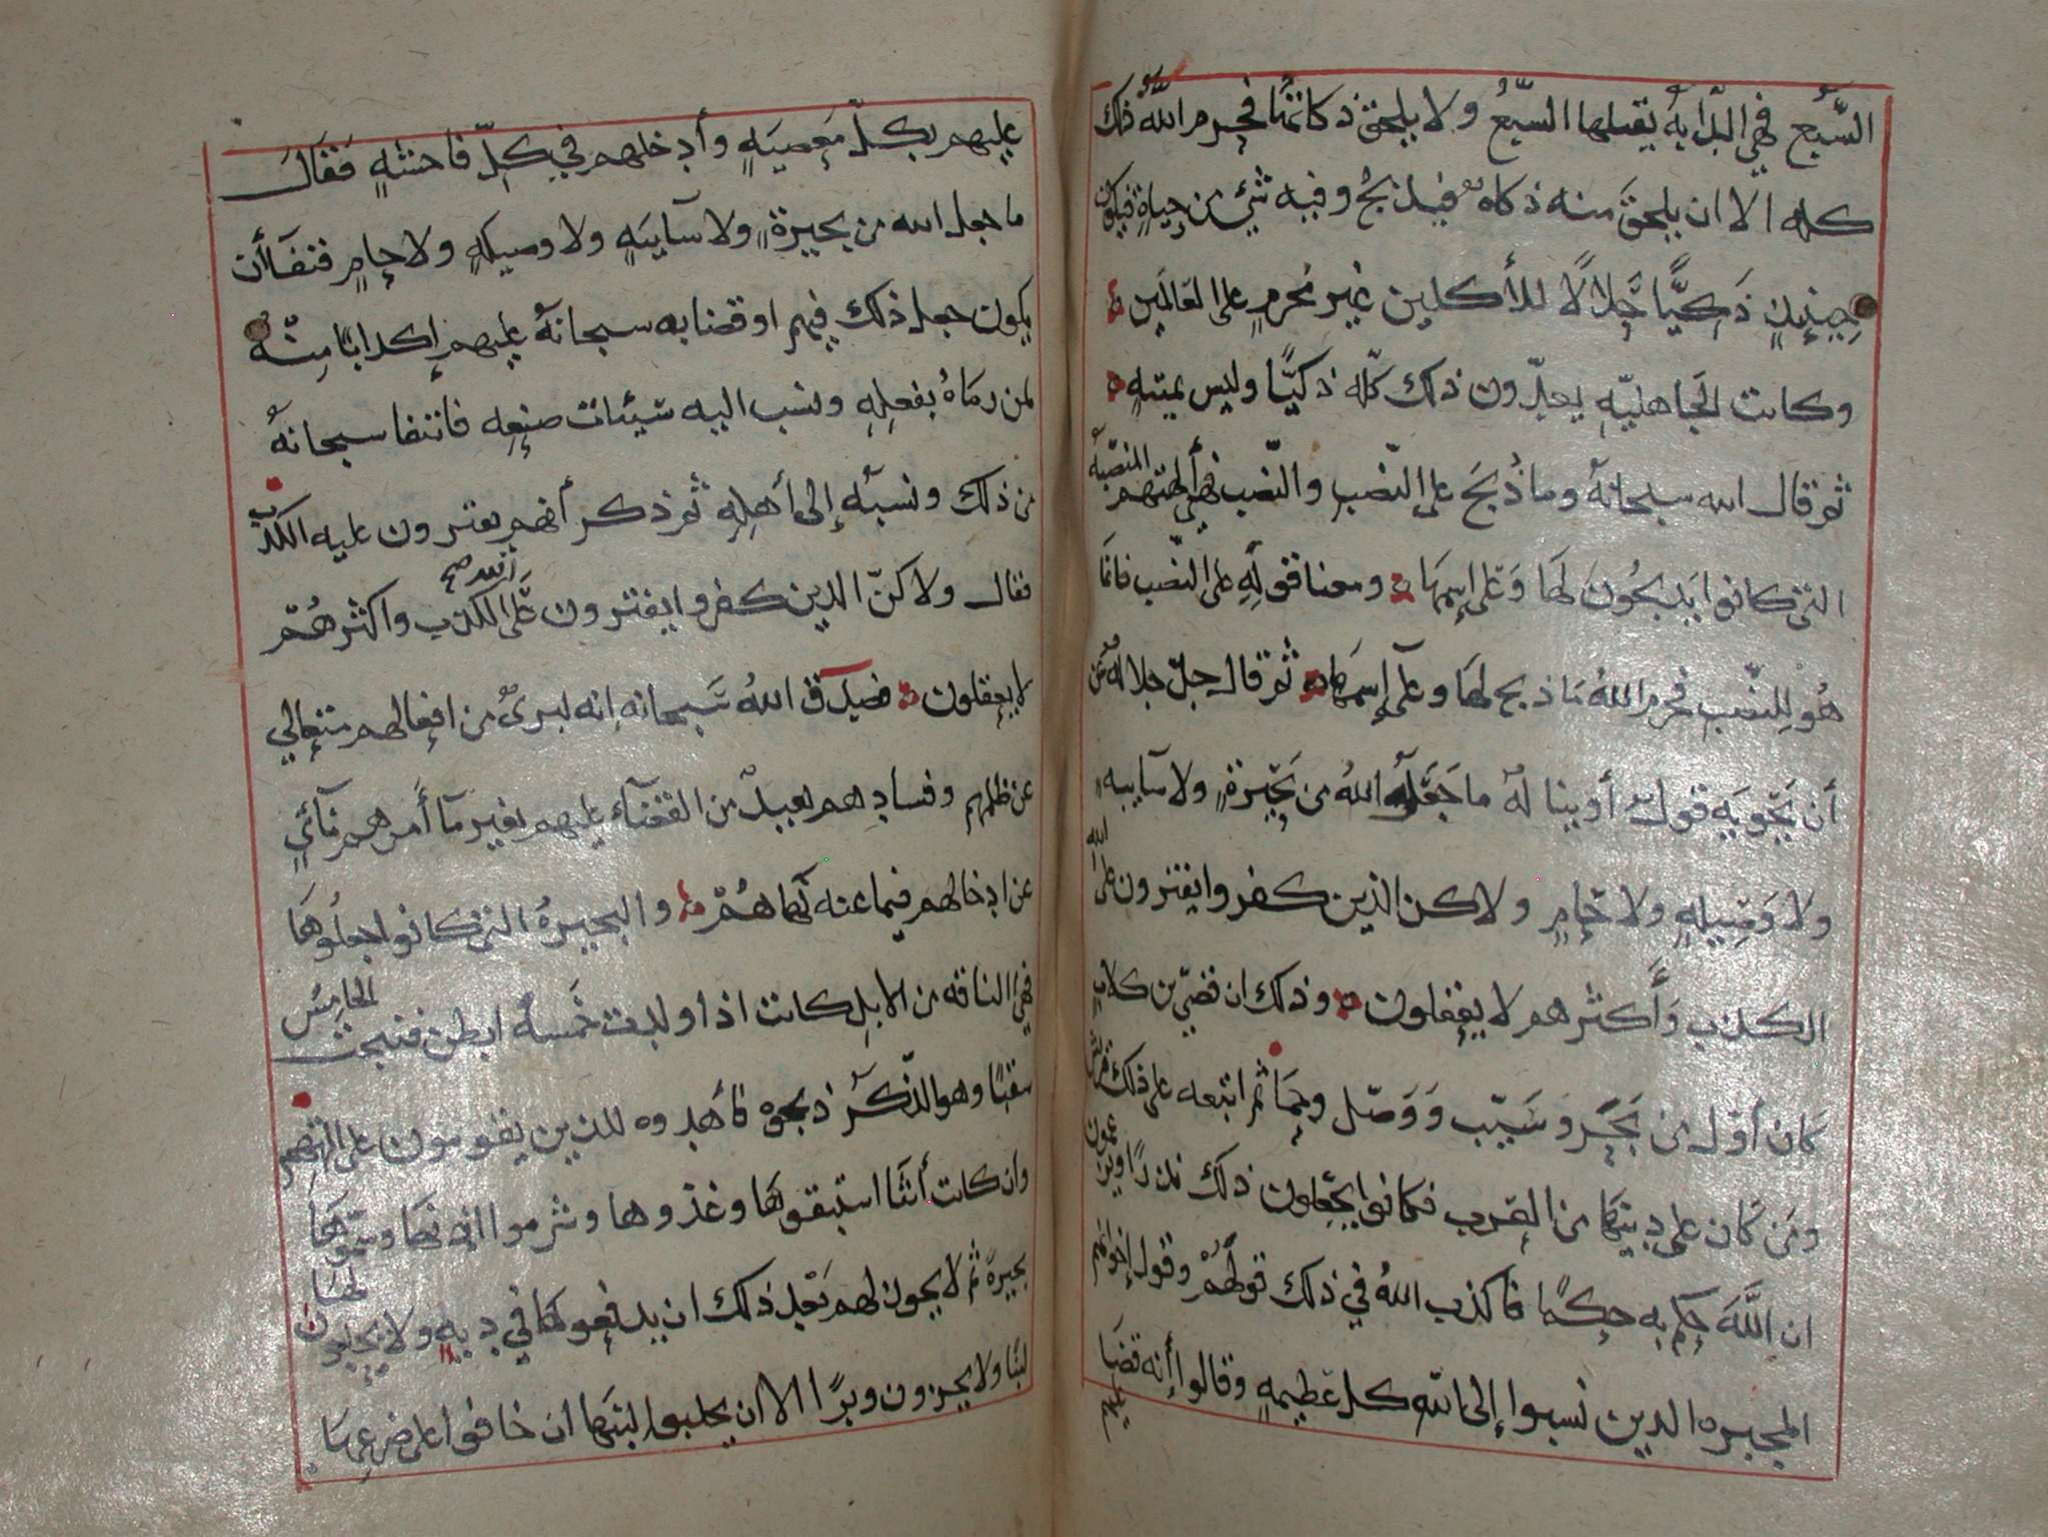 السَّبُع فهي البدايه يقتلها السبُّعُ ولا يلحق ذكاتها فحرم اللَّهُ ذلك
كله الا ان يلحقَ منه ذكاه فيذبحُ وفيه شيٌ من حياةٍ فيكون
حِينئِذٍ ذَكِيًّا حَلالًا للأكلين غير مُحَرمٍ على العَالمَين
وكانت الجَاهليّه يعدّون ذلك كلّه ذكيًّا وليس بميتهٍ
ثم قال الله سبحانهُ وما ذُبحَ على النّصُبِ والنّصُب فهي ألهتهم المنصّبهُ
التي كانوا يَذبحُونَ لَها وَعَلى إسمِهَا ومعنا قولِهِ على النّصُب فانمَا
هُو لِلنّصُبِ فحرم اللهُ مَا ذبح لهَا وعلَى إسمَها ثم قال جلّ جلالهُ عَن
أن يَحويَه قولٌ أو ينالهُ ما جَعَلَ اللهُ من بَحِيرَةٍ ولا سآيبهٍ
ولا وَصِيلهٍ ولا حَامٍ ولاكن الذين كفروا يفترون على الله
الكذب وَأكثرهم لا يعقلون وذلك ان قصَيّ بن كلابٍ
كان أوّل من بَحَّر وَسَيّب وَوَصّل وحَمَا ثم اتبعه على ذلك قريش
ومَن كان على دينهَا من العَرب فكانوا يجعَلون ذلك نذرًا ويزعمون
ان اللَّهَ حكم به حكمًا فاكذب اللهُ في ذلك قولَهُمْ وقول إخوانهم
المجبره الذين نسبوا إلى الله كل عَظيمهٍ وقالوا إنه قضَا عليهم
عليهم بكلّ مَعصيَهٍ وأدخلهم في كلّ فاحشهٍ فَقَالَ
ما جعل الله من بحيرةٍ ولا سآيبَهٍ ولا وصيلهٍ ولا حامٍ فنفَا أن
يكون جعل ذلك فيهم او قضا به سبحانهُ عليهم إكذابًا مِنهُ
لمن رمَاهُ بفعلِهِ ونسب اليه سَيئات صنعِه فانتفا سبحانهُ
من ذلك ونسبَه إلى أهلِهِ ثم ذكر أنهم يفترون عليه الكذب
فقال ولاكنّ الذين كفروا يفترون عَلَى الله صح الكذب واكثرهُمْ
لا يعقلون فصَدَق اللهُ سَبحانه إنه لبريٌ من افعالهم متعَالي
عن ظلمهم وفسادِهم بعيدٌ من القضَآء عليهم بغير مآ أَمرهم نآئي
عن ادخالهم فيما عنه نَهاهُمْ والبحيرهُ التي كانوا جعلُوهَا
فهي الناقه من الابل كانت اذا ولدت خَمسهُ ابطن فنتجت الخامِسُ
سقبًا وهو الذّكَرُ ذبحوه فأهدوه للذين يقومون على الهتهم
وان كانت أُنثَا استبقوهَا وغذوها وشرموا اذنهَا وسَمّوهَا
بحيرةً ثم لا يجوز لهم بَعْد ذلك ان يدفعوهَا في ديهٍ ولا يحلبون لهَا
لبنًا ولا يجزون وبرًا الا ان يحلبوا لبنَها ان خافوا على ضرعِهَا